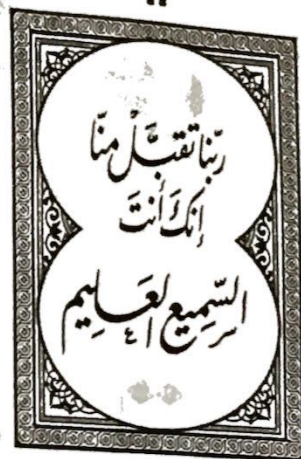 ربّنا تقبّل منّا
إنكَ أنتَ
السّمِيع العَليم